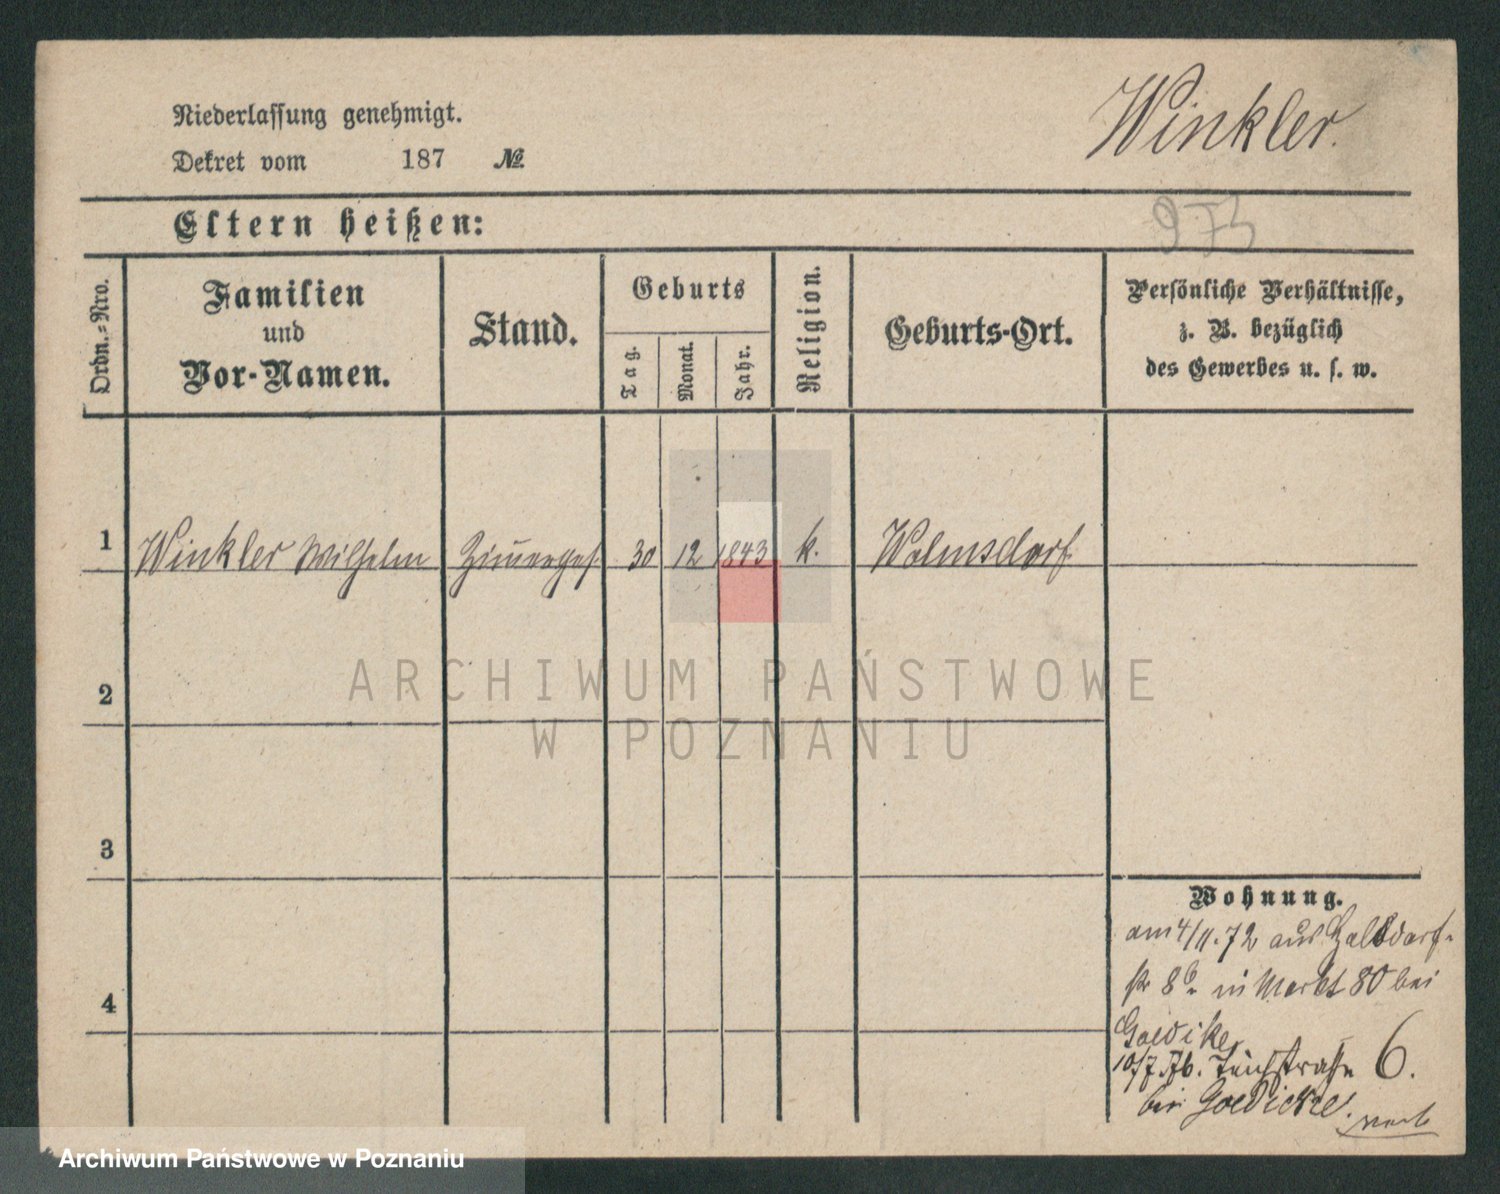 Winkler.
Niederlassung genehmigt.
Dekret vom 187 №
973
Eltern heißen:
Ordn.=Nro.
Familien
und
Vor-Namen.
Stand.
Geburts
Tag.
Monat.
Jahr.
Religion.
Geburts-Ort.
Persönliche Verhältnisse,
z. B. bezüglich
des Gewerbes u. s. w.
1 Winkler Wilhelm Zimergес. 30 12 1843 k. Wolmsdorf
2
3
4
Wohnung.
am 4/11. 72 aus Halbdorf-
str 8b. in Markt 80 bei
Goedike
10/7 76. Teichstraße 6.
bei Goedicke.
ARCHIWUM PAŃSTWOWE
W POZNANIU
Archiwum Państwowe w Poznaniu